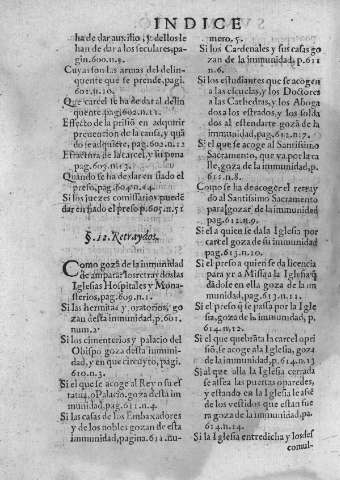 INDICE
ha de dar auxilio, y dellos le
han de dar a los seculares, pagin.
600. n. 9.
Cuyas son las armas del delinquente
que se prende, pagi.
601. n. 10.
Que carcel se ha de dar al delinquente,
pag. 602. n. 11.
Effecto de la prisiō en adquirir
preuencion de la causa, y quādo
se adquiere, pag. 602. n. 12
Efractura de la carcel, y su pena
pag. 603. n. 13.
Quando se ha de dar en fiado el
preso, pag. 604. n. 14.
Si los juezes comissarios puedē
dar en fiado el preso p. 605. n. 15
§. 12. Retraydos.
Como gozā de la inmunidad
de amparar los retraydos las
Iglesias Hospitales y Monasterios,
pag. 609. n. 1.
Si las hermitas y oratorios, gozan
desta inmunidad, p. 601.
num. 2.
Si los cimenterios y palacio del
Obispo goza desta immunidad,
y en que circuyto, pagi.
610. n. 3.
Si el que se acoge al Rey o su estatua,
o Palacio, goza desta immunidad,
pag. 611. n. 4.
Si las casas de los Embaxadores
y de los nobles gozan de esta
immunidad, pagina. 611. numero.
5.
Si los Cardenales y sus casas gozan
de la immunidad, p. 611
n. 6.
Si los estudiantes que se acogen
a las escuelas, y los Doctores
a las Cathedras, y los Abogados
a los estrados, y los soldados
al estandarte gozā de la
immunidad, pag. 612. n. 7.
Si el que se acoge al Santissimo
Sacramento, que va por la calle,
goza de la immunidad, p.
612. n. 8.
Como se ha de acoger el retraydo
al Santissimo Sacramento
para gozar de la immunidad
pag. 612. n. 9.
Si el a quien se dala Iglesia por
carcel goza de su immunidad
pag. 613. n. 10.
Si el preso a quien se da licencia
para yr a Missa a la Iglesia q̄
dādose en ella goza de la immunidad,
pag. 613. n. 11.
Si el preso q̄ se passa por la Iglesia,
goza de la immunidad, p.
614. n. 12.
Si el que quebrāta la carcel o prisiō,
se acoge a la Iglesia, goza
de la immunidad, p. 614. n. 13
Si al que alla la Iglesia cerrada
se assea las puertas o paredes,
y estando en la Iglesia le asē
de los vestidos que estan fuera
goza de la immunidad, pa.
614. n. 14.
Si la Iglesia entredicha y los des
comul-